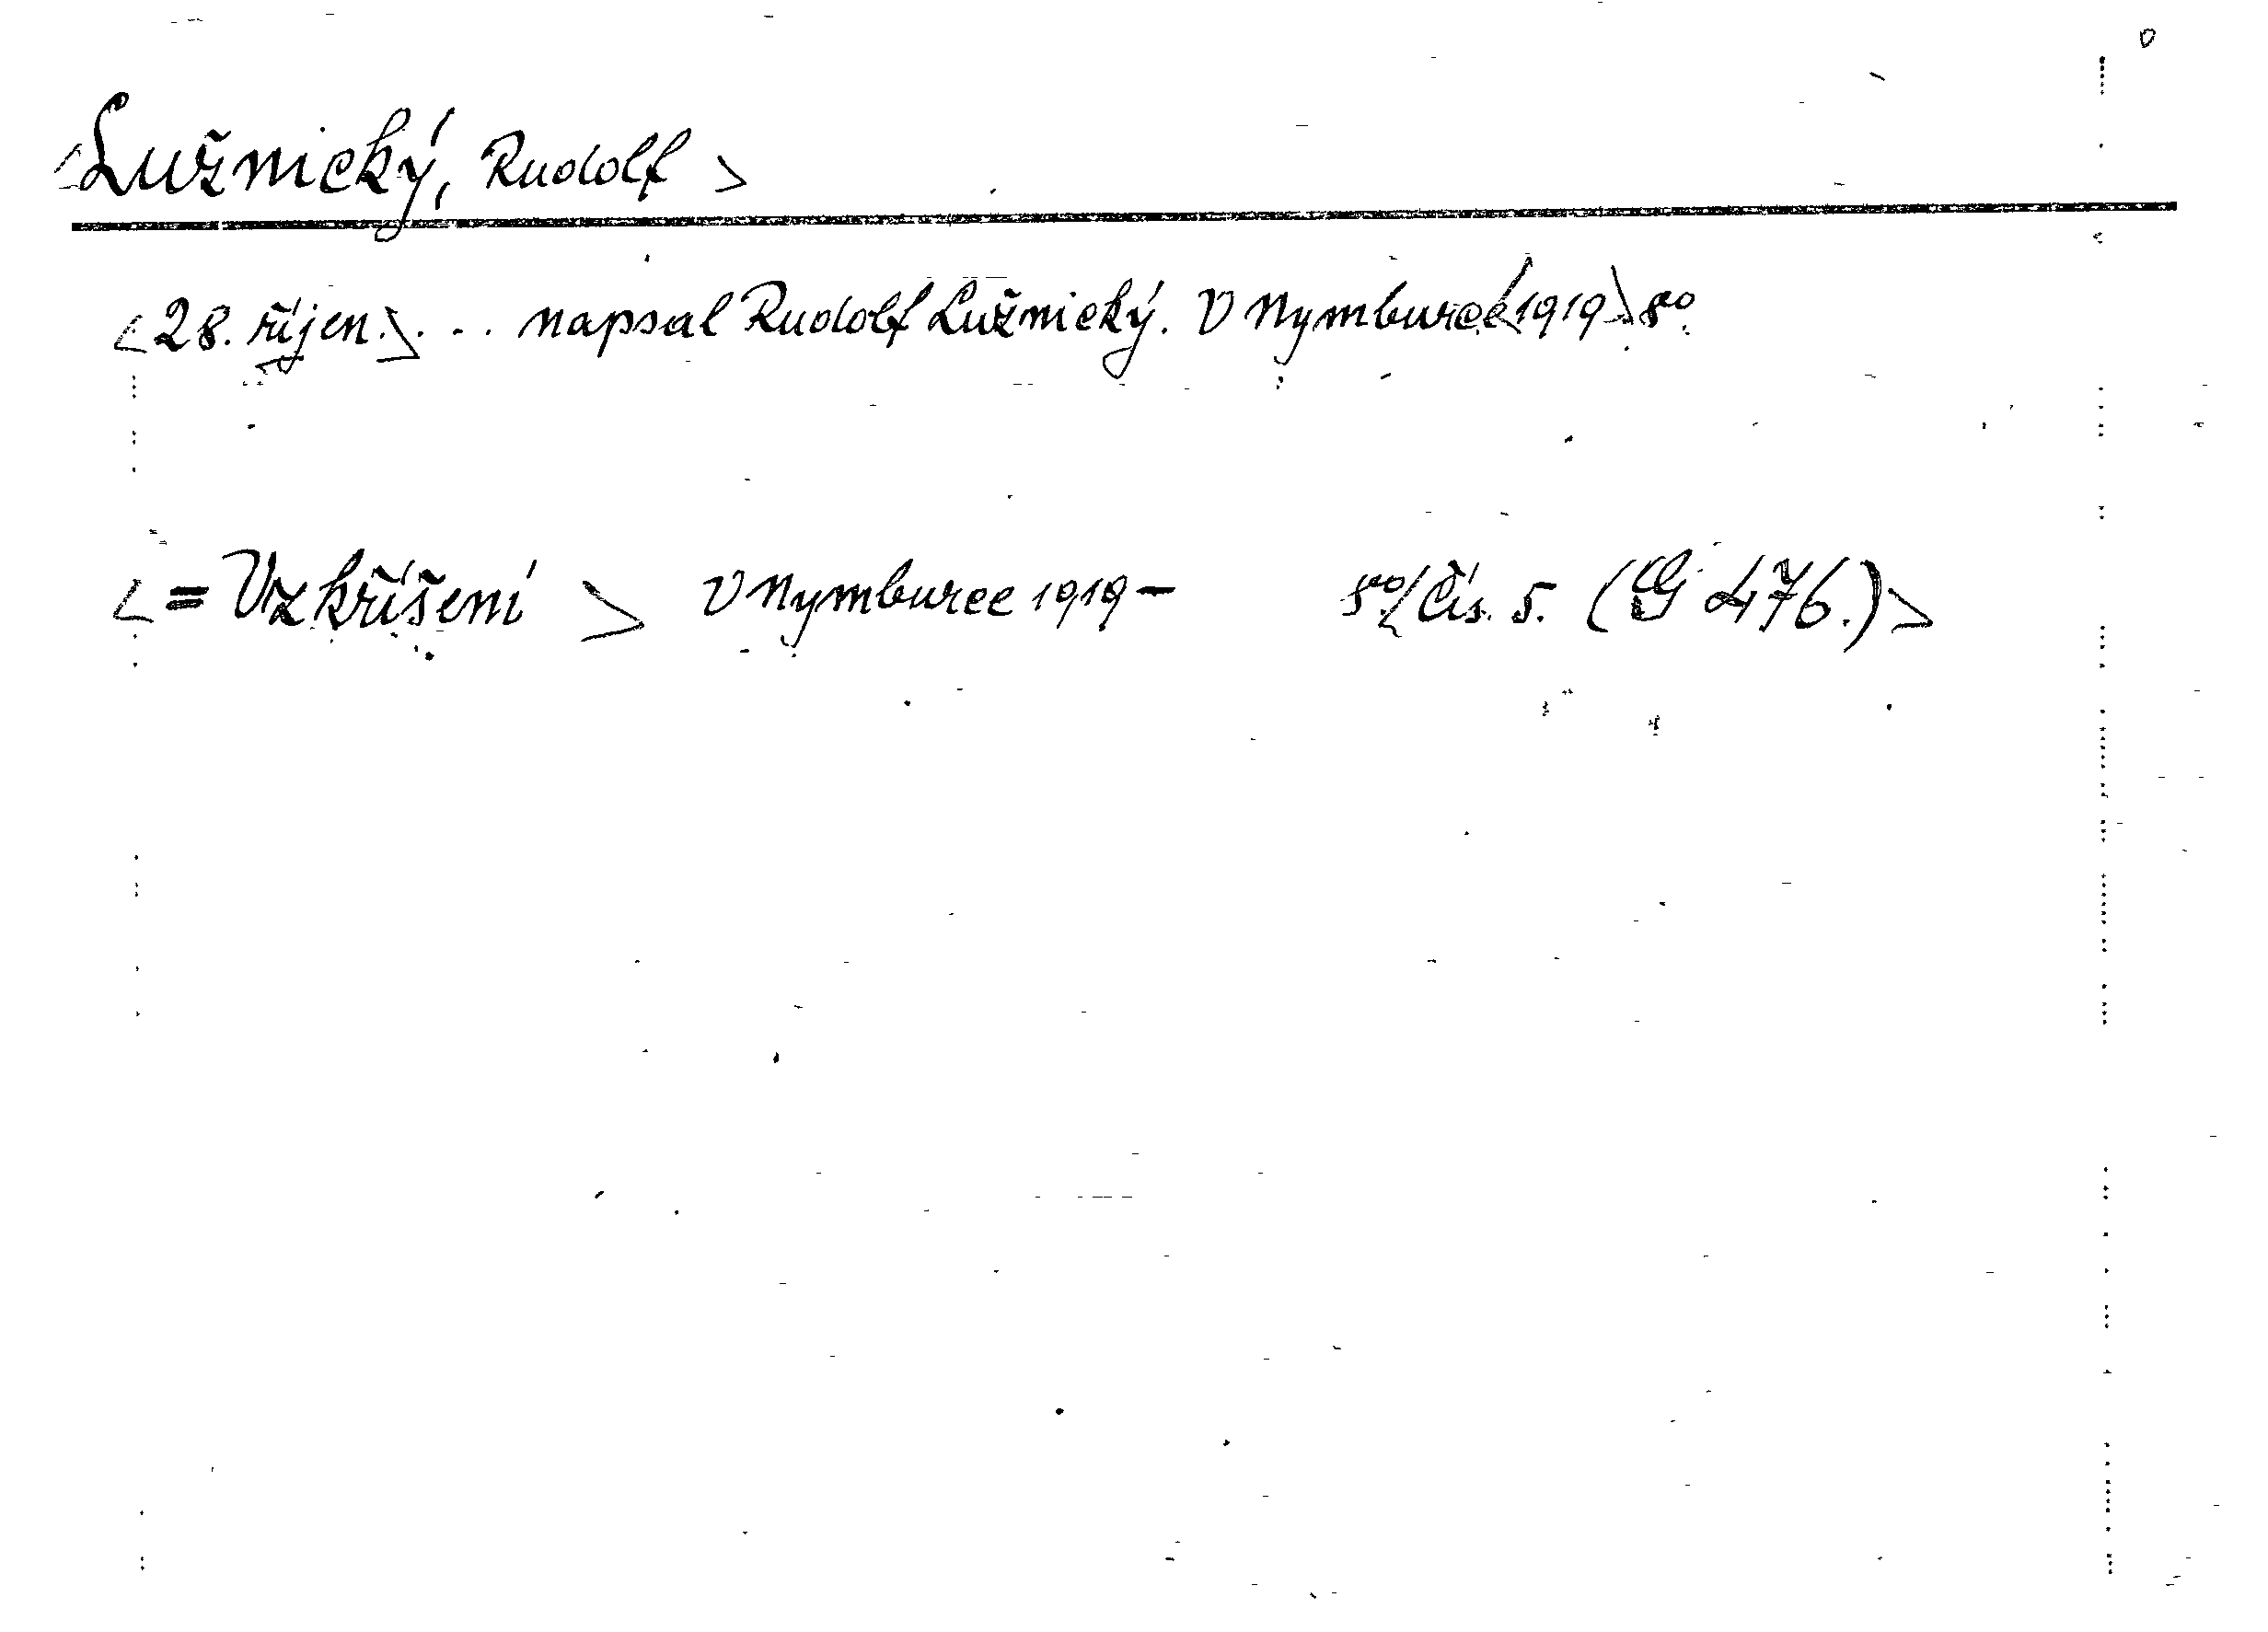 <Lužnický, Rudolf>
<28. říjen.> ... napsal Rudolf Lužnický. V Nymburce<1919>8°.
<= Vzkříšení > V Nymburce 1919 – 8°<Čís. 5. (G 476.)>